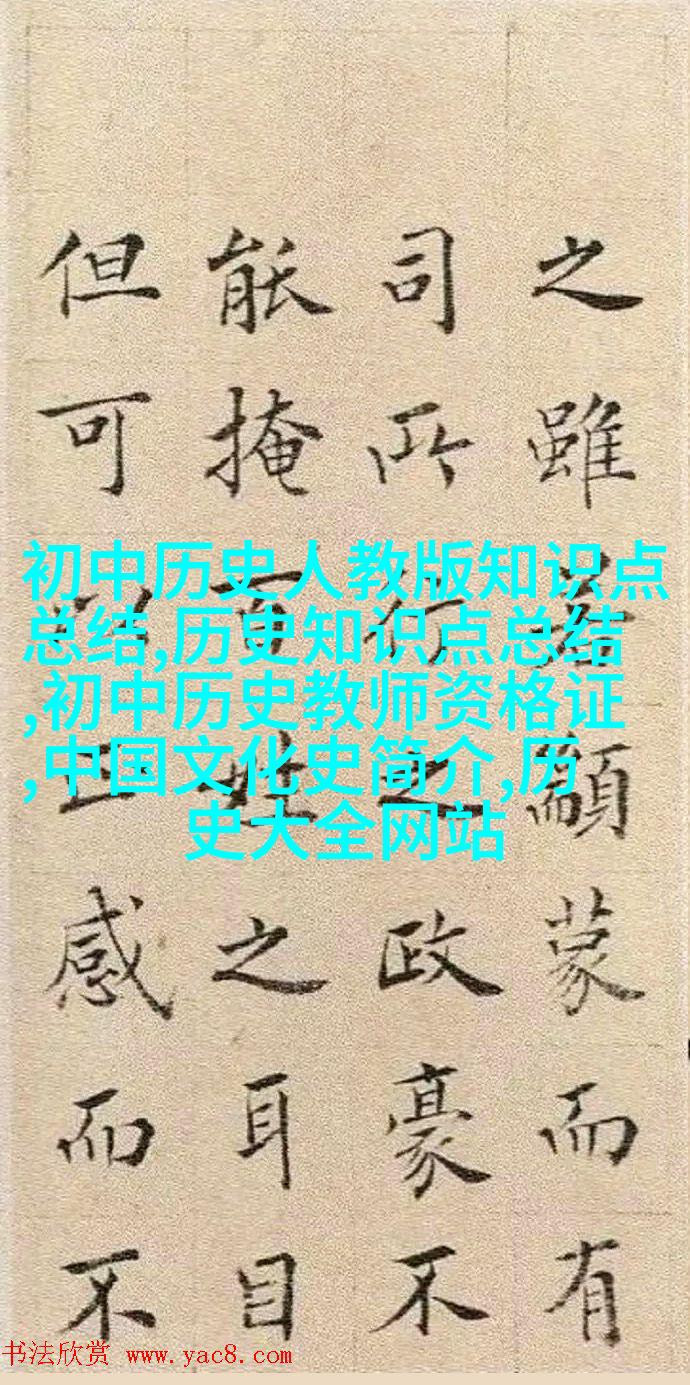 之雖若顓蒙而有
司所行之政豪不
能掩百姓之耳目
但可以感而不
初中历史人教版知识点
总结,历史知识点总结
,初中历史教师资格证
,中国文化史简介,历
史大全网站
书法欣赏 www.yac8.com